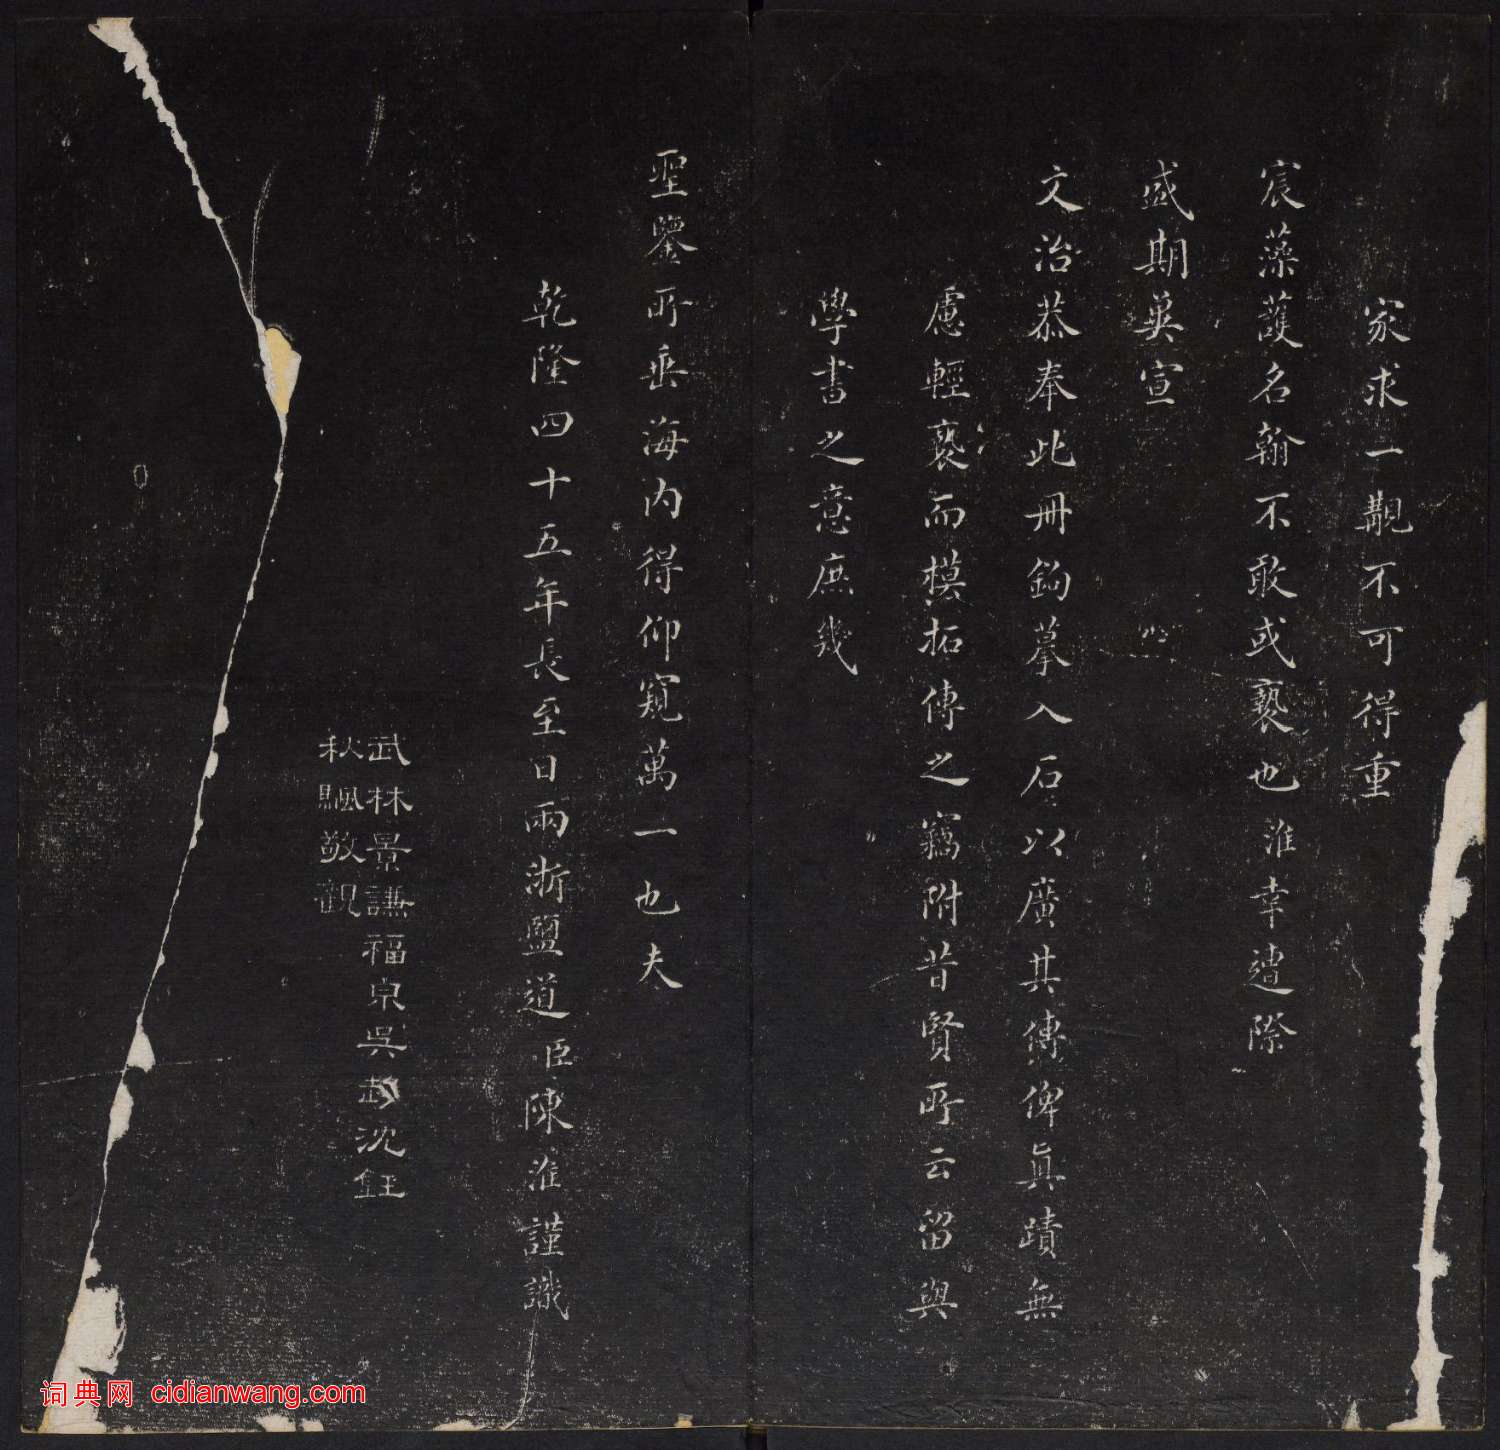 家求一觀不可得重
宸藻護名翰不敢或褻也淮幸遭際
盛期英宣
文治恭奉此冊鉤摹入石以廣其傳俾真蹟無
慮輕褻而模拓傳之竊附昔賢所云留與
學書之意庶幾
聖鑒所垂海内得仰窺萬一也夫
乾隆四十五年長至日兩浙鹽道臣陳淮謹識
武林景謙福泉吳 沈鈺
秋颿敬觀
词典网 cidianwang.com